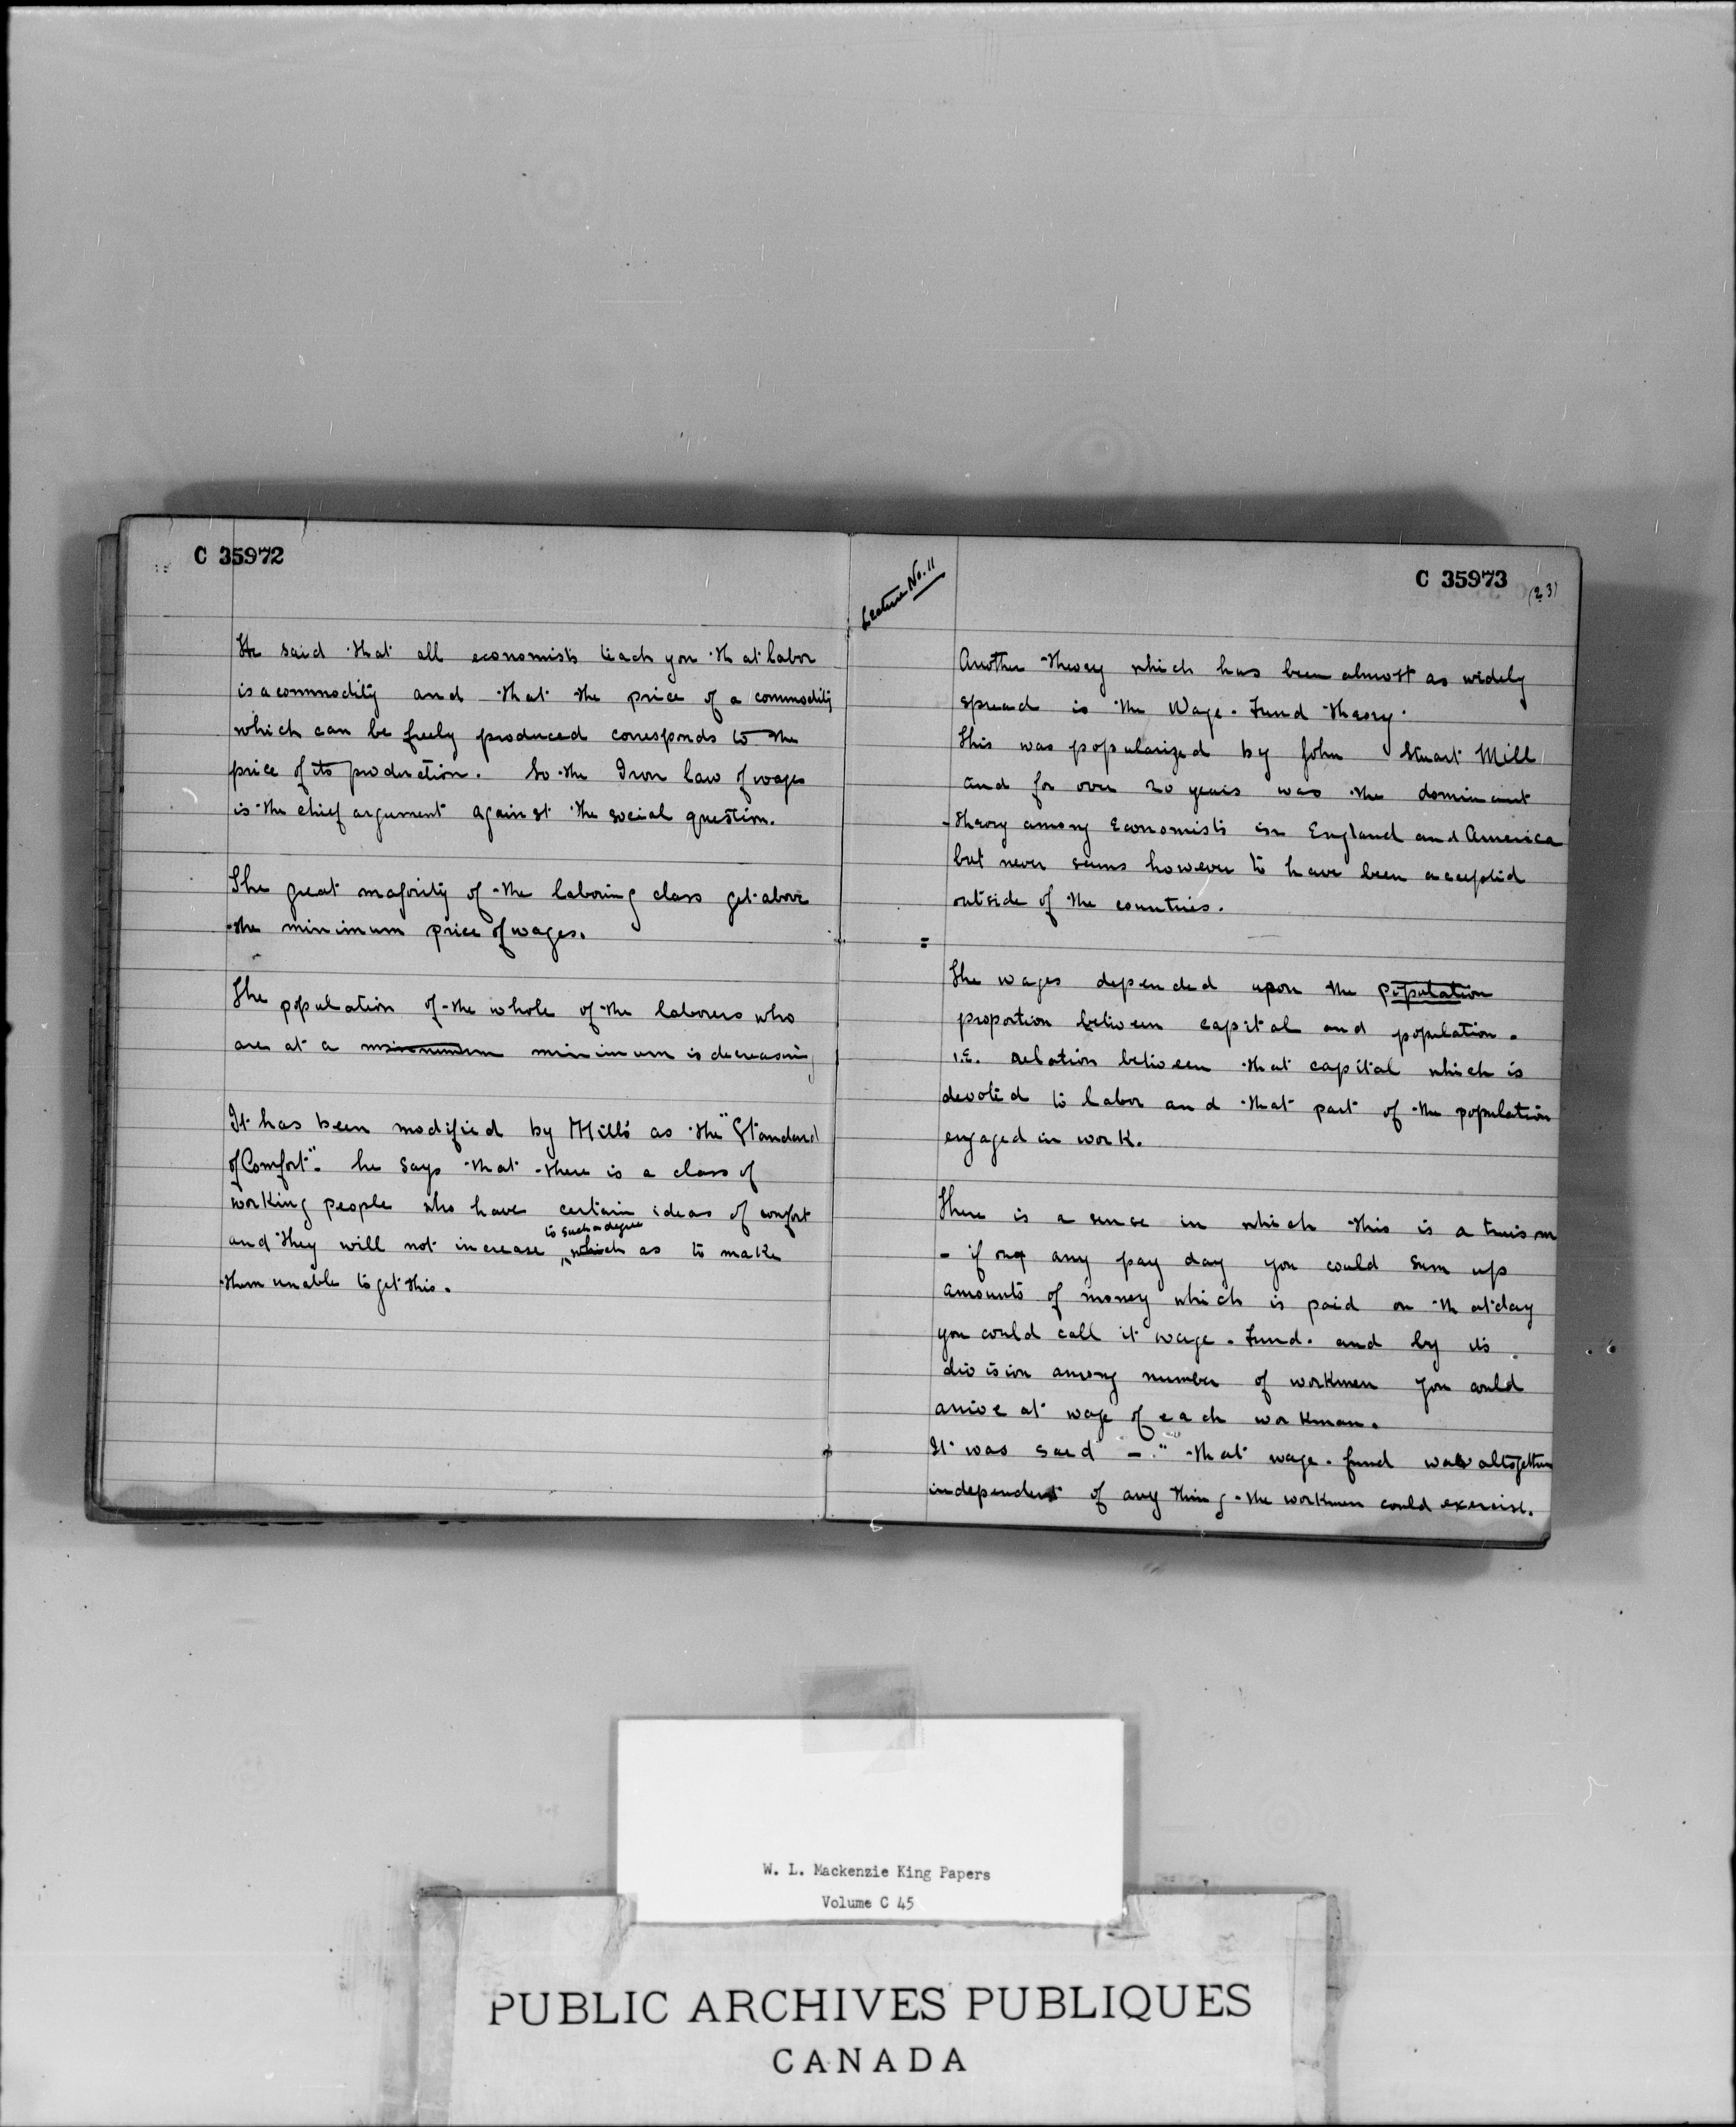 C 35972
He said that all economists teach you that labor
is a commodity and that the price of a commodity
which can be freely produced corresponds to the
price of its production. So the Iron law of wages
is the chief argument against the social question.
The great majority of the laboring class get above
the minimum price of wages.
The population of the whole of the laborers who
are at a minimum minimum is decreasing
It has been modified by Mills as the "Standard
of Comfort". he says that there is a class of
working people who have certain ideas of comfort
to such a degree
and they will not increase which as to make
them unable to get this.
Lecture No. 11
C 35973
(23)
Another theory which has been almost as widely
spread is the Wage-Fund theory.
This was popularized by John Stuart Mill
and for over 20 years was the dominant
theory among Economists in England and America
but never seems however to have been accepted
outside of the countries.
=
The wages depended upon the population
proportion between capital and population.
i.e. relation between that capital which is
devoted to labor and that part of the population
engaged in work.
There is a sense in which this is a truism
- if on any pay day you could sum up
amounts of money which is paid on that day
you could call it wage-fund. and by its
division among number of workmen you could
arrive at wage of each workman.
It was said - " that wage-fund was altogether
independent of any thing the workmen could exercise.
W. L. Mackenzie King Papers
Volume C 45
PUBLIC ARCHIVES PUBLIQUES
CANADA